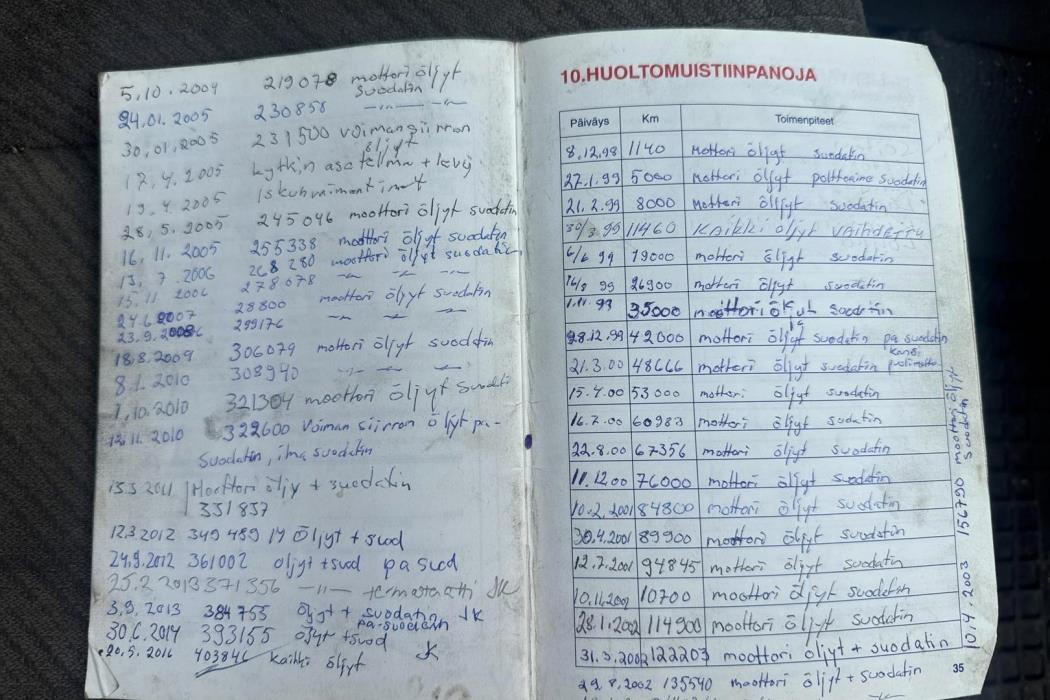 5.10.2004 219078 mottori öljyt
suodatin
24.01.2005 230858 -"- -"-
30.01.2005 231500 voimansiirron
öljyt
17.4.2005 kytkin asetelma + levy
19.4.2005 Iskunvaimantimet
28.5.2005 245046 moottori öljyt suodatin
16.11.2005 255338 mottori öljyt suodatin
13.7.2006 268 280 moottori öljyt suodatin
15.11 2006 278078 -"- -"- -"-
24.6.2007 28800 moottori öljyt suodatin
23.9.2008 299176 -"- -"- -"-
18.8.2009 306079 mottori öljyt suodatin
8.1.2010 308940 -"- -"- -"-
1.10.2010 321304 moottori öljyt
12.11.2010 322600 Voiman siirron öljyt pa-
suodatin, ilma suodatin
13.3.2011 Moottori öljy + suodatin
331837
17.3.2012 349 489 öljyt + suod
24.9.2012 361002 öljyt + suod pa suod
25.2.2013 371356 -"- termostaatti JK
3.9.2013 384755 öljyt + suodatin JK
pa-suodatin
30.6.2014 393155 öljyt + suod
20.5.2016 403846 kaikki öljyt JK
10.HUOLTOMUISTIINPANOJA
Päiväys Km Toimenpiteet
8.12.98 1140 mottori öljyt suodatin
27.1.99 5000 mottori öljyt polttoaine suodatin
21.2.99 8000 mottori öljyt suodatin
30/3.99 11460 KAIKKI öljyt VAIHDETTU
6/6 99 19000 mottori öljyt suodatin
16/8 99 26900 mottori öljyt suodatin
1.11.99 35000 moottori suodatin
28.12.99 42000 mottori öljyt suodatin pa suodatin
21.3.00 48666 mottori öljyt suodatin
15.4.00 53000 mottori öljyt suodatin
16.7.00 60983 mottori öljyt sudatin
22.8.00 67356 mottori öljyt suodatin
11.12.00 76000 mottori öljyt suodatin
10.2.2001 84800 mottori öljyt suodatin
30.4.2001 89900 mottori öljyt suodatin
12.7.2001 94845 mottori öljyt suodatin
10.11.2001 10700 moottori öljyt suodatin
28.1.2002 114900 moottori öljyt suodatin
31.3.2002 122203 moottori öljyt + suodatin
29.8.2002 135540 moottori öljyt + suodatin
10.4.2003 156790 moottori öljyt
suodatin
35